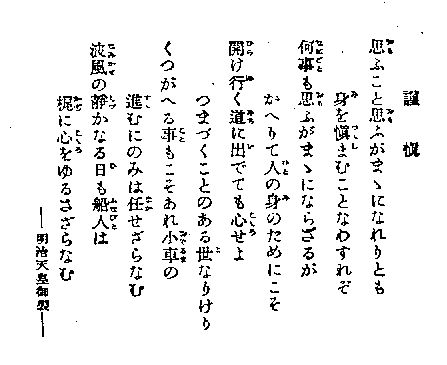 謹慎
思ふこと思ふがまゝになれりとも
身を愼まむことなわすれぞ
何事も思ふがまゝにならざるが
かへりて人の身のためにこそ
開け行く道に出でても心せよ
つまづくことのある世なりけり
くつがへる事もこそあれ小車の
進むにのみは任せざらなむ
波風の靜かなる日も船人は
梶に心をゆるさざらなむ
──明治天皇御製──